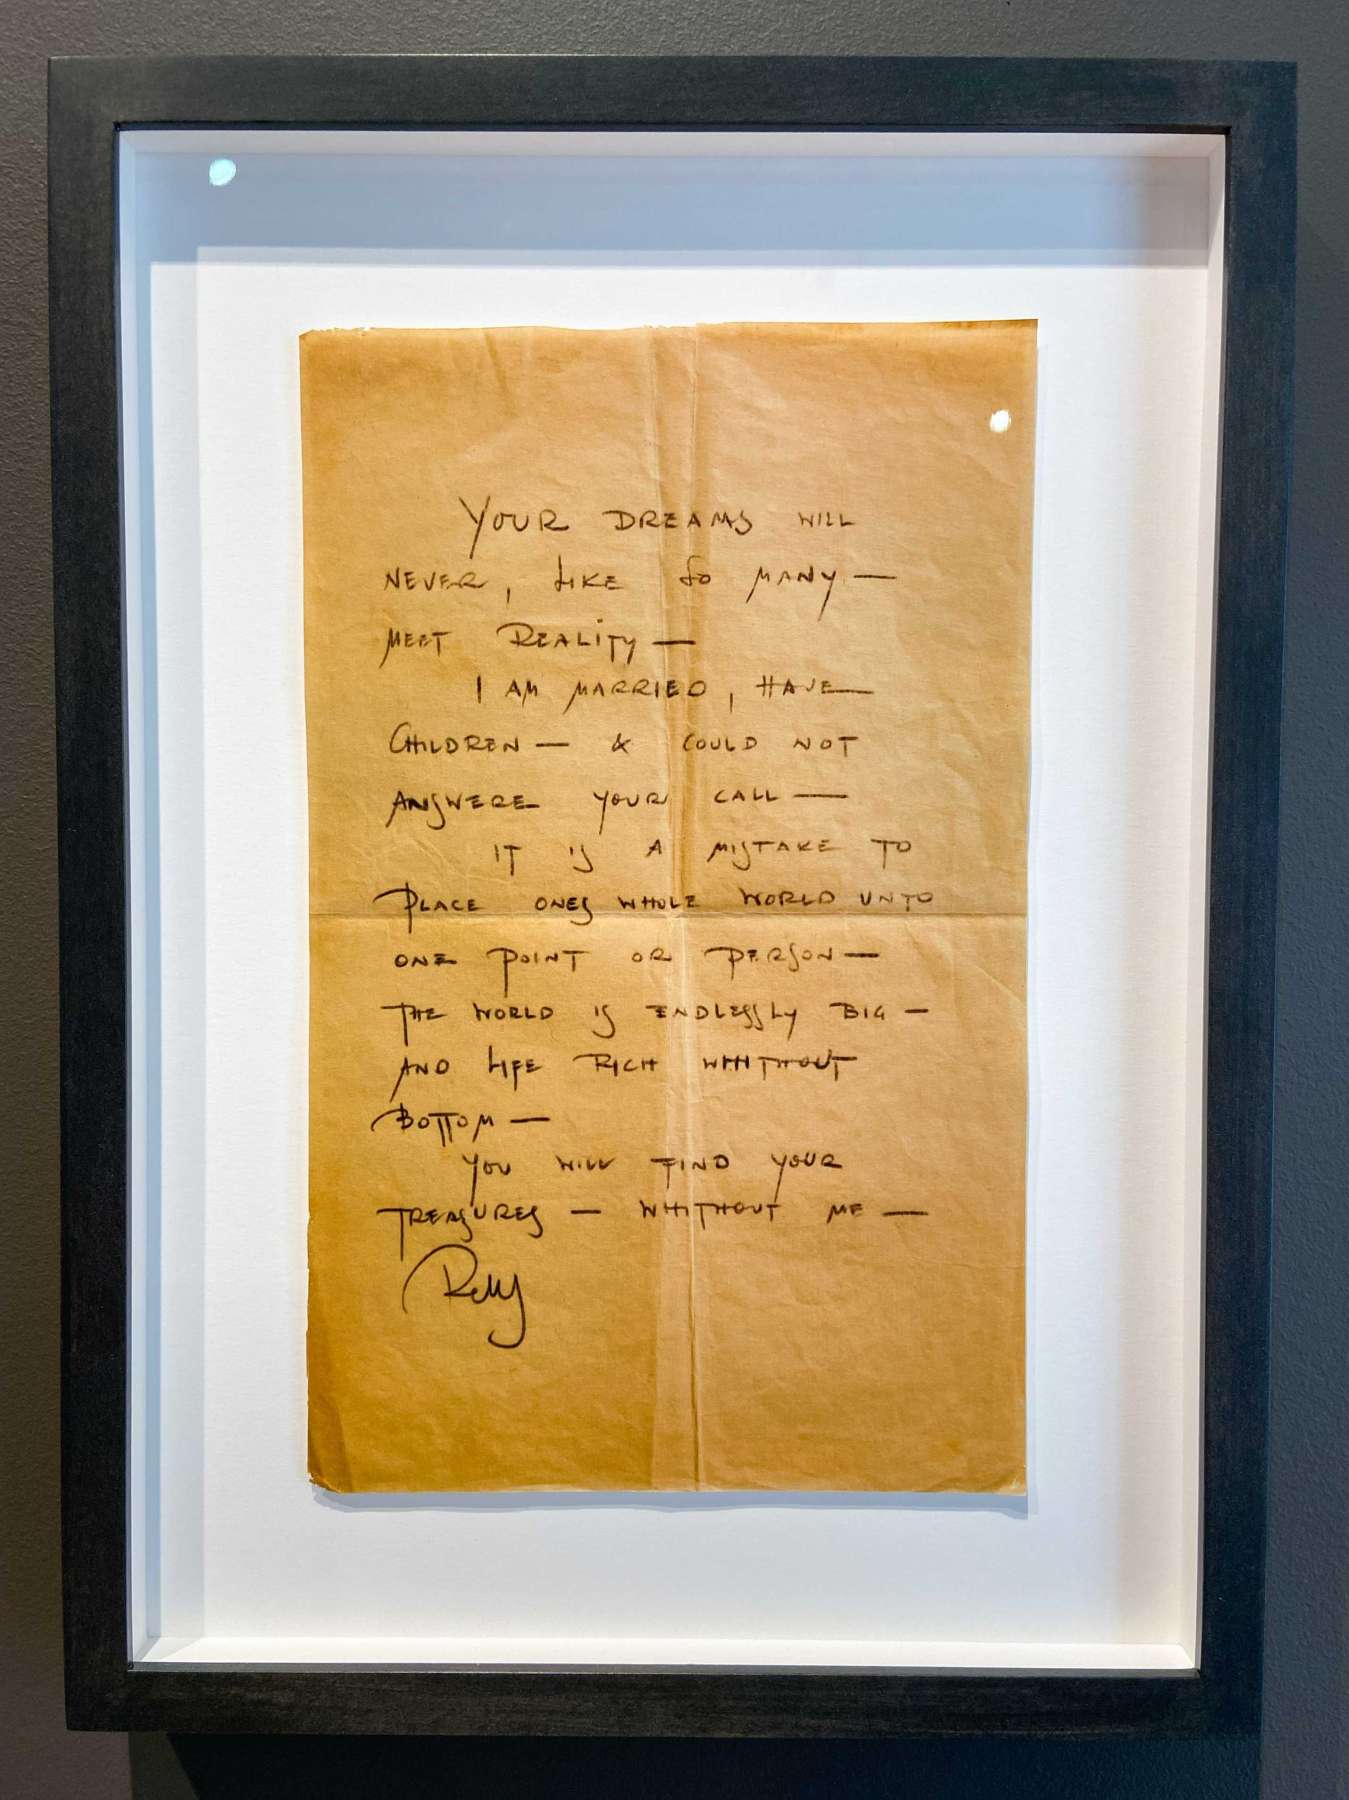 YOUR DREAMS WILL
NEVER, LIKE SO MANY —
MEET REALITY —
I AM MARRIED, HAVE
CHILDREN — & COULD NOT
ANSWERE YOUR CALL —
IT IS A MISTAKE TO
PLACE ONES WHOLE WORLD UNTO
ONE POINT OR PERSON —
THE WORLD IS ENDLESSLY BIG —
AND LIFE RICH WHITHOUT
BOTTOM —
YOU WILL FIND YOUR
TREASURES — WHITHOUT ME —